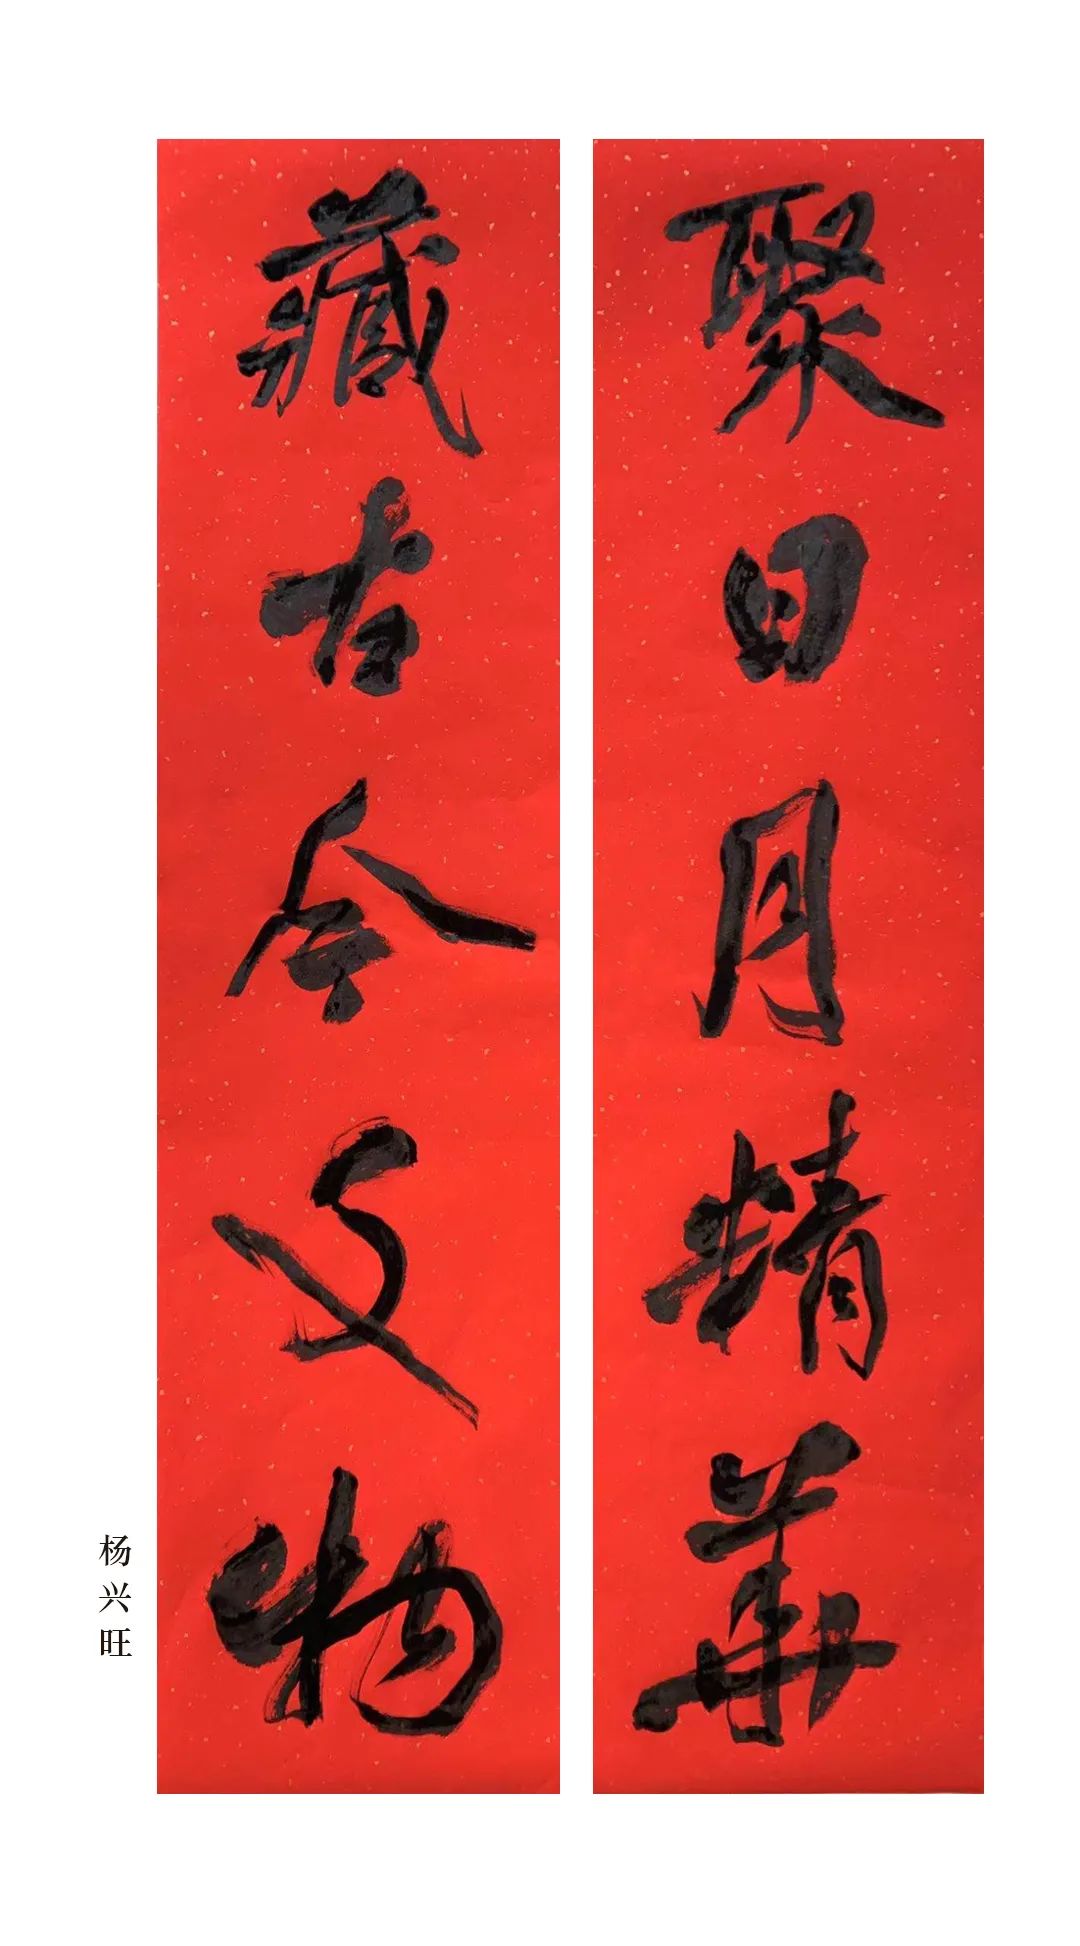 聚日月精華
藏古今文物
杨兴旺